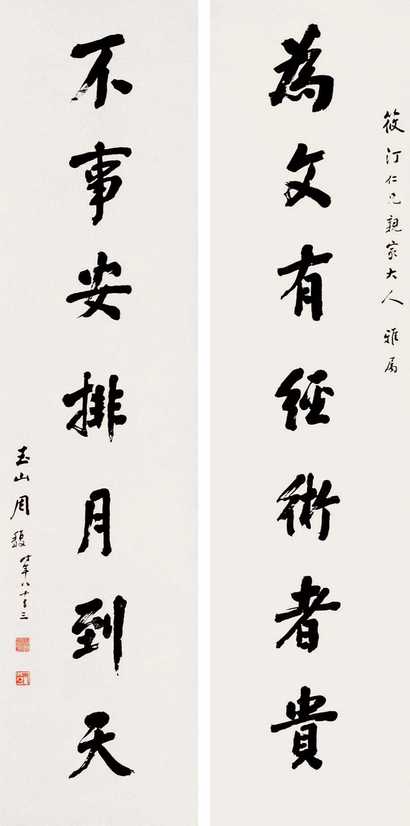 筱汀仁兄親家大人 雅屬
為文有經術者貴
不事安排月到天
玉山周馥時年八十有三